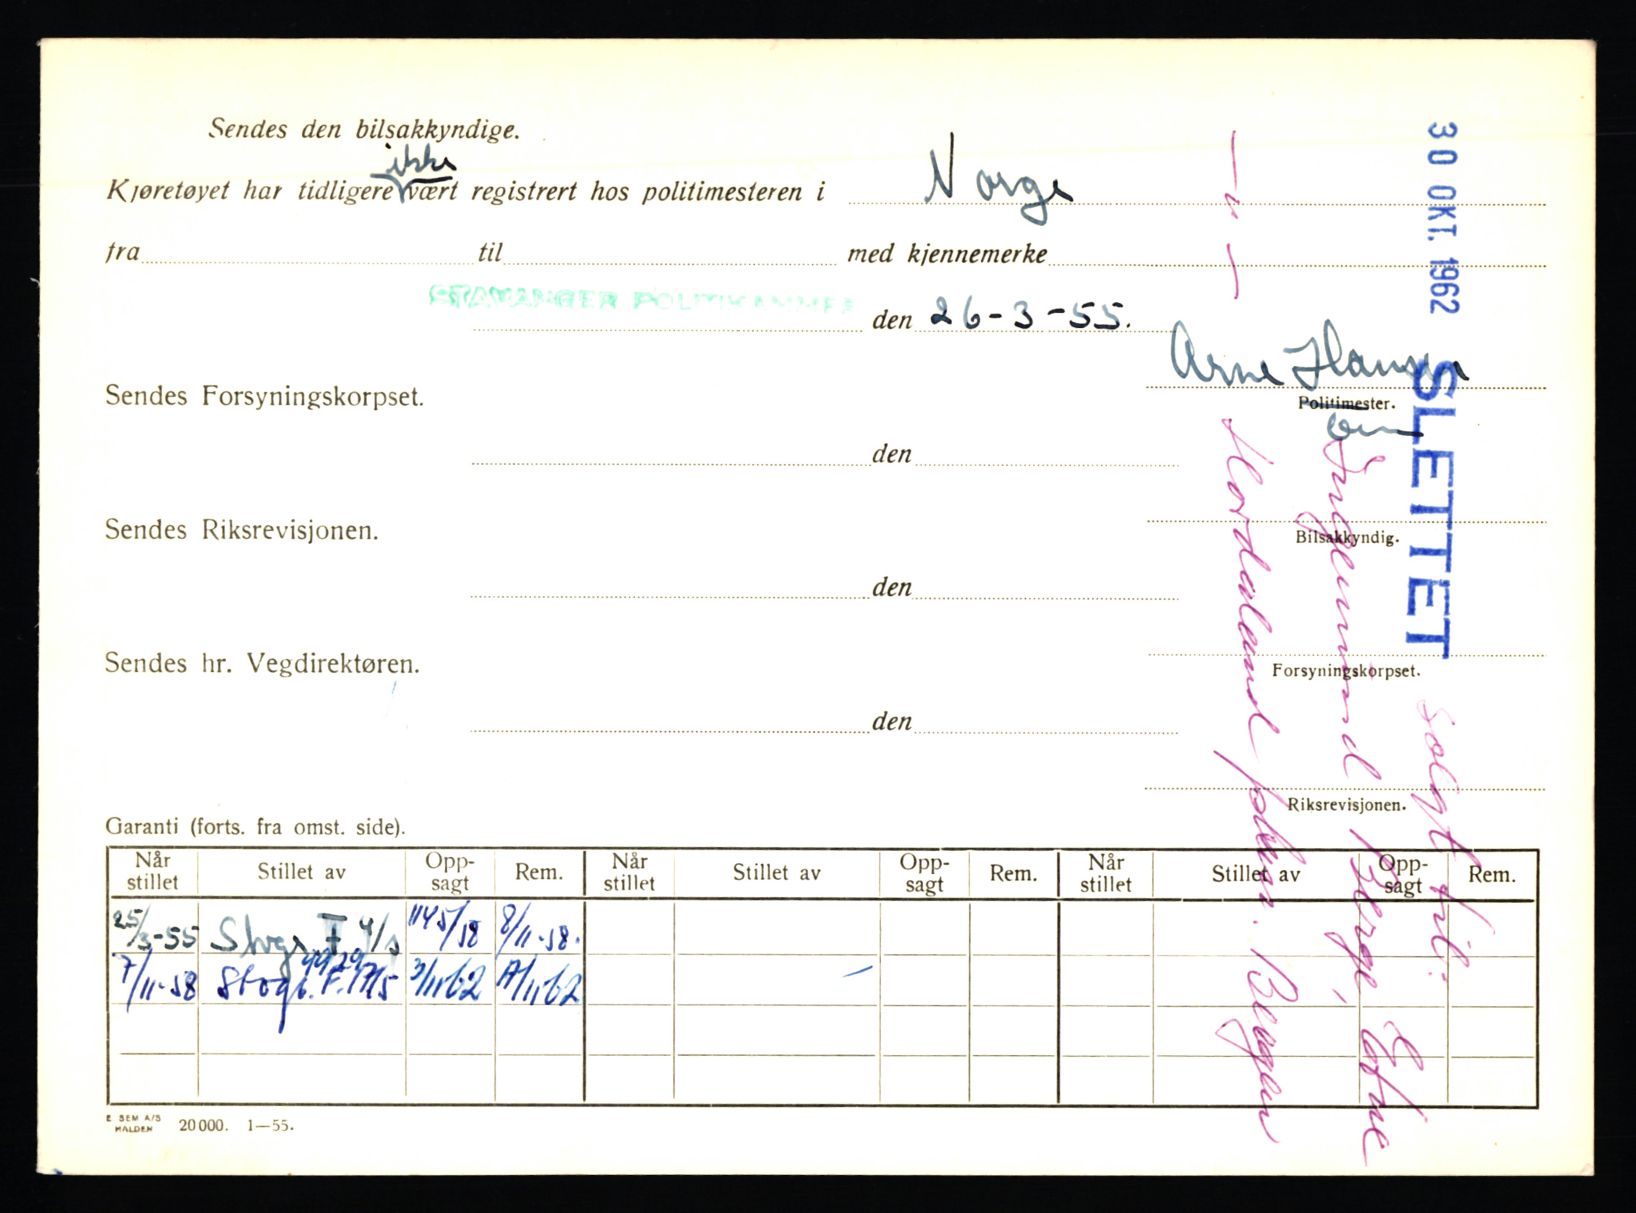 Sendes den bilsakkyndige.
ikke
Kjøretøyet har tidligere vært registrert hos politimesteren i Norge
fra til med kjennemerke
STAVANGER POLITIKAMMER
den 26-3-55.
Arne Hansen
Politimester.
Sendes Forsyningskorpset.
den
Bilsakkyndig.
Sendes Riksrevisjonen.
den
Forsyningskorpset.
Sendes hr. Vegdirektøren.
den
Riksrevisjonen.
30 OKT. 1962 SLETTET
solgt til:
Ingemund Berge, Etne
Hordaland
Bergen
— " —
Garanti (forts. fra omst. side).
Når stillet Stillet av Oppsagt Rem. Når stillet Stillet av Oppsagt Rem. Når stillet Stillet av Oppsagt Rem.
25/3-55 8/11-58.
7/11-58 3/11 62
E SEM A/S HALDEN 20000. 1—55.